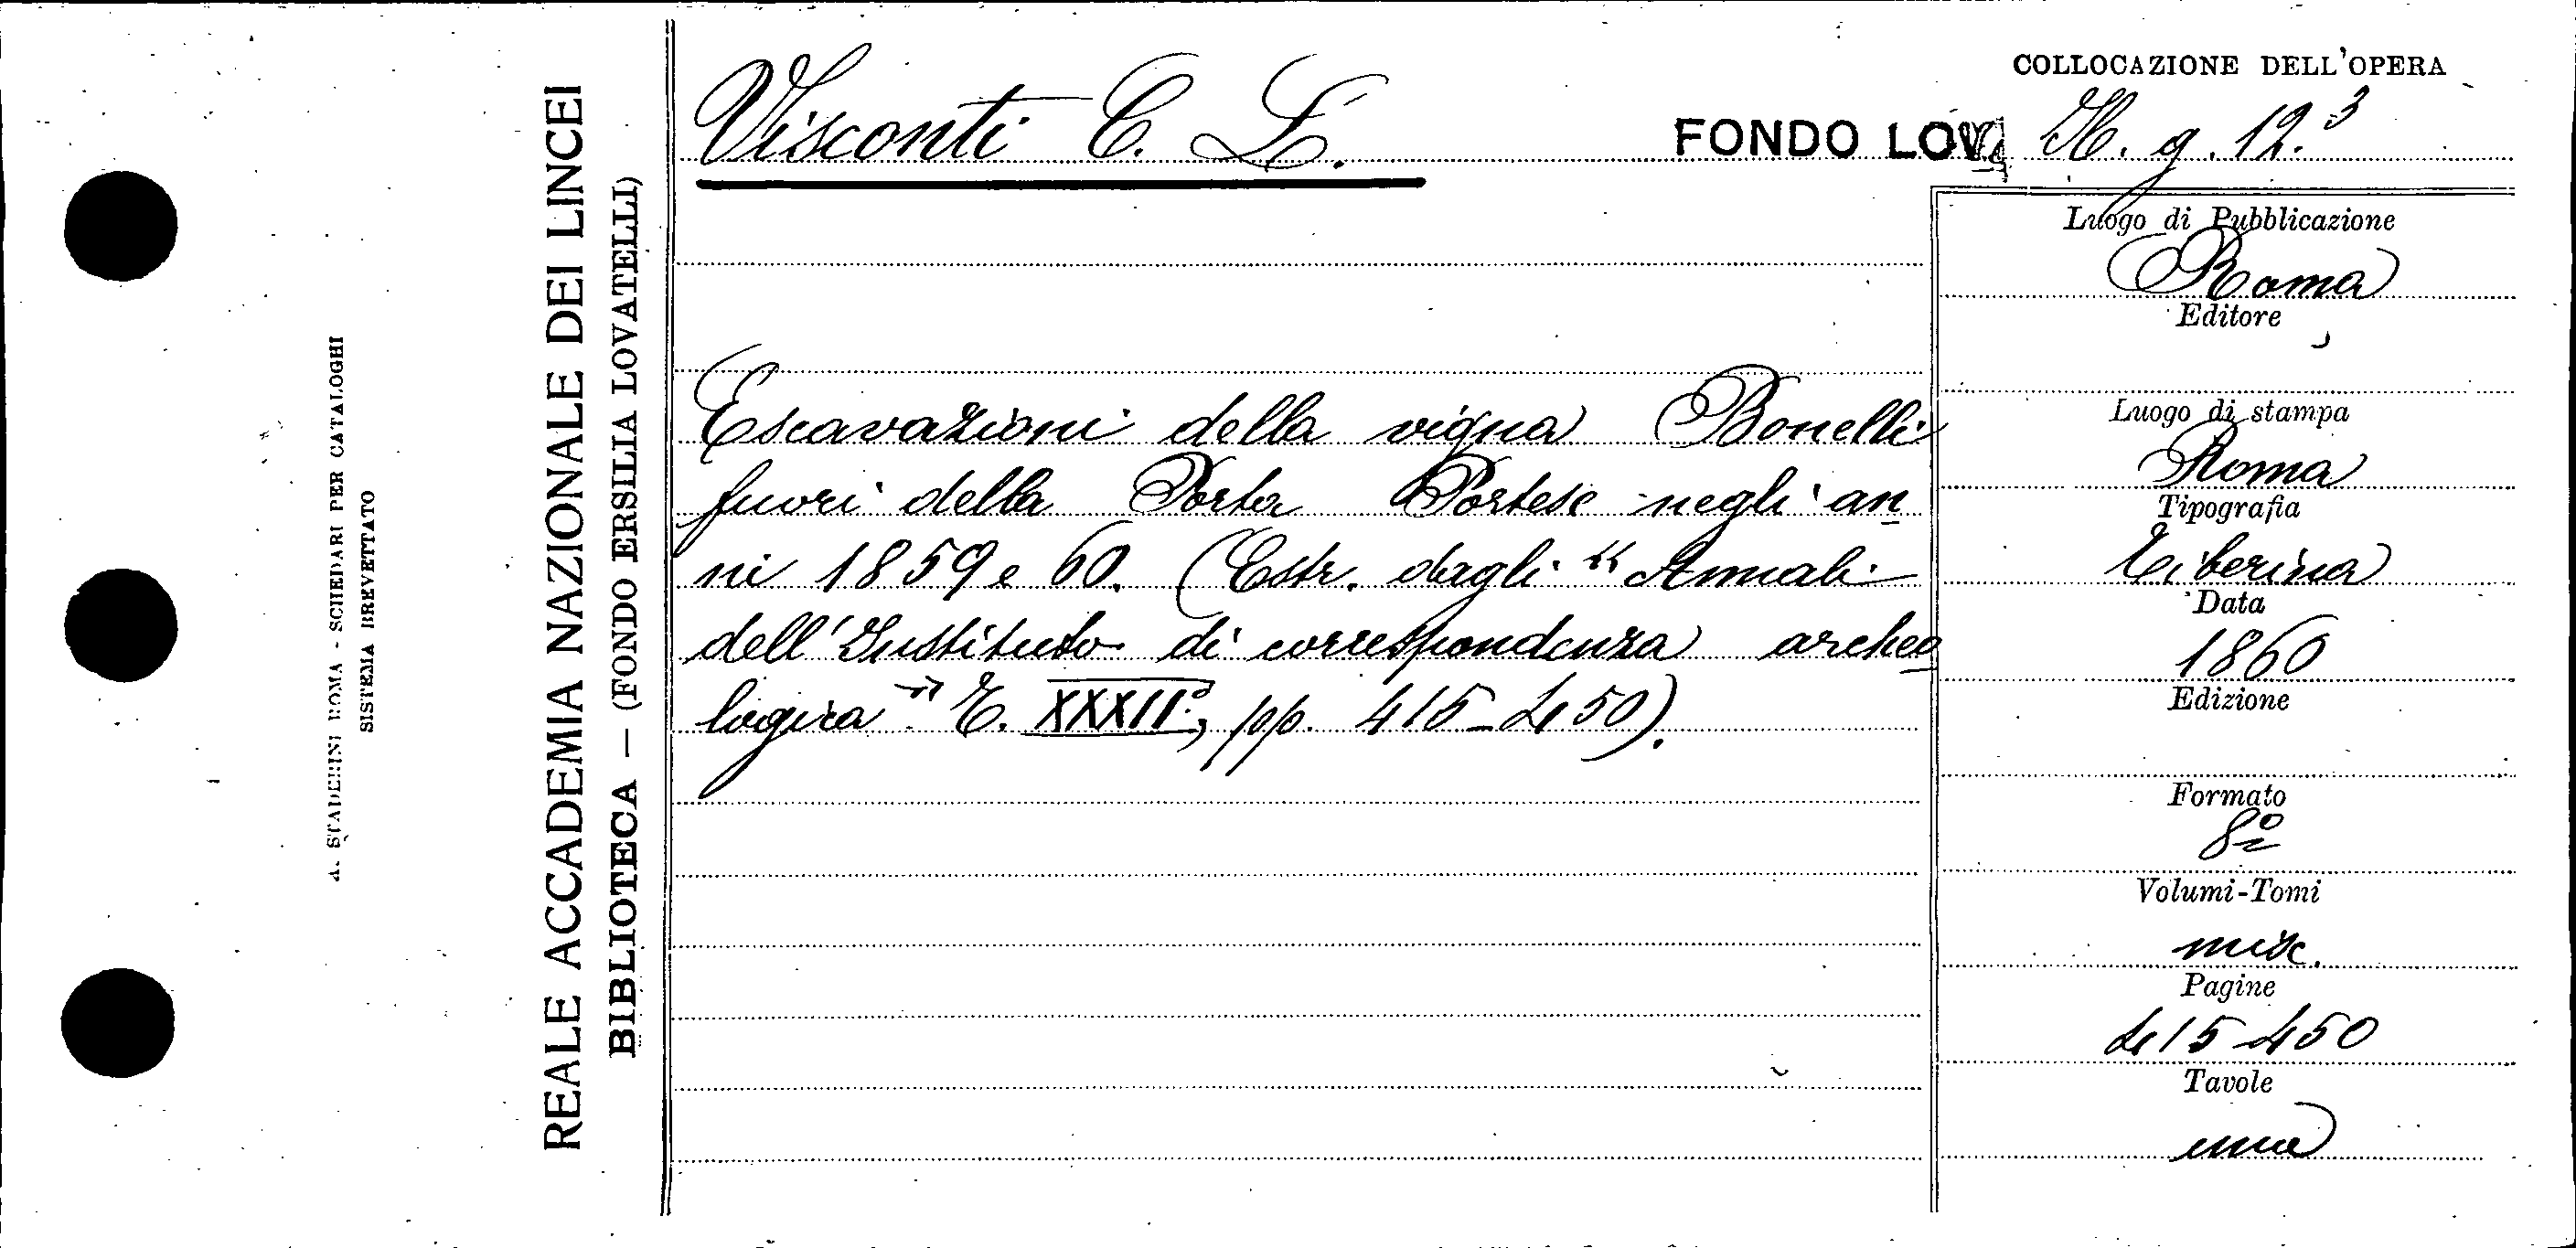 COLLOCAZIONE DELL'OPERA
Visconti C. L.
FONDO LOV H. g. 12.3
Escavazioni della vigna Bonelli
fuori della Porta Portese negli an
ni 1859 e 60. (Estr. dagli "Annali
dell'Instituto di correspondenza archeo
logica" T. XXXII°, pp. 415-450).
Luogo di Pubblicazione
Roma
Editore
Luogo di stampa
Roma
Tipografia
Tiberina
Data
1860
Edizione
Formato
8°
Volumi-Tomi
misc.
Pagine
415-450
Tavole
una
REALE ACCADEMIA NAZIONALE DEI LINCEI
BIBLIOTECA — (FONDO ERSILIA LOVATELLI)
A. STADERINI ROMA - SCHEDARI PER CATALOGHI
SISTEMA BREVETTATO